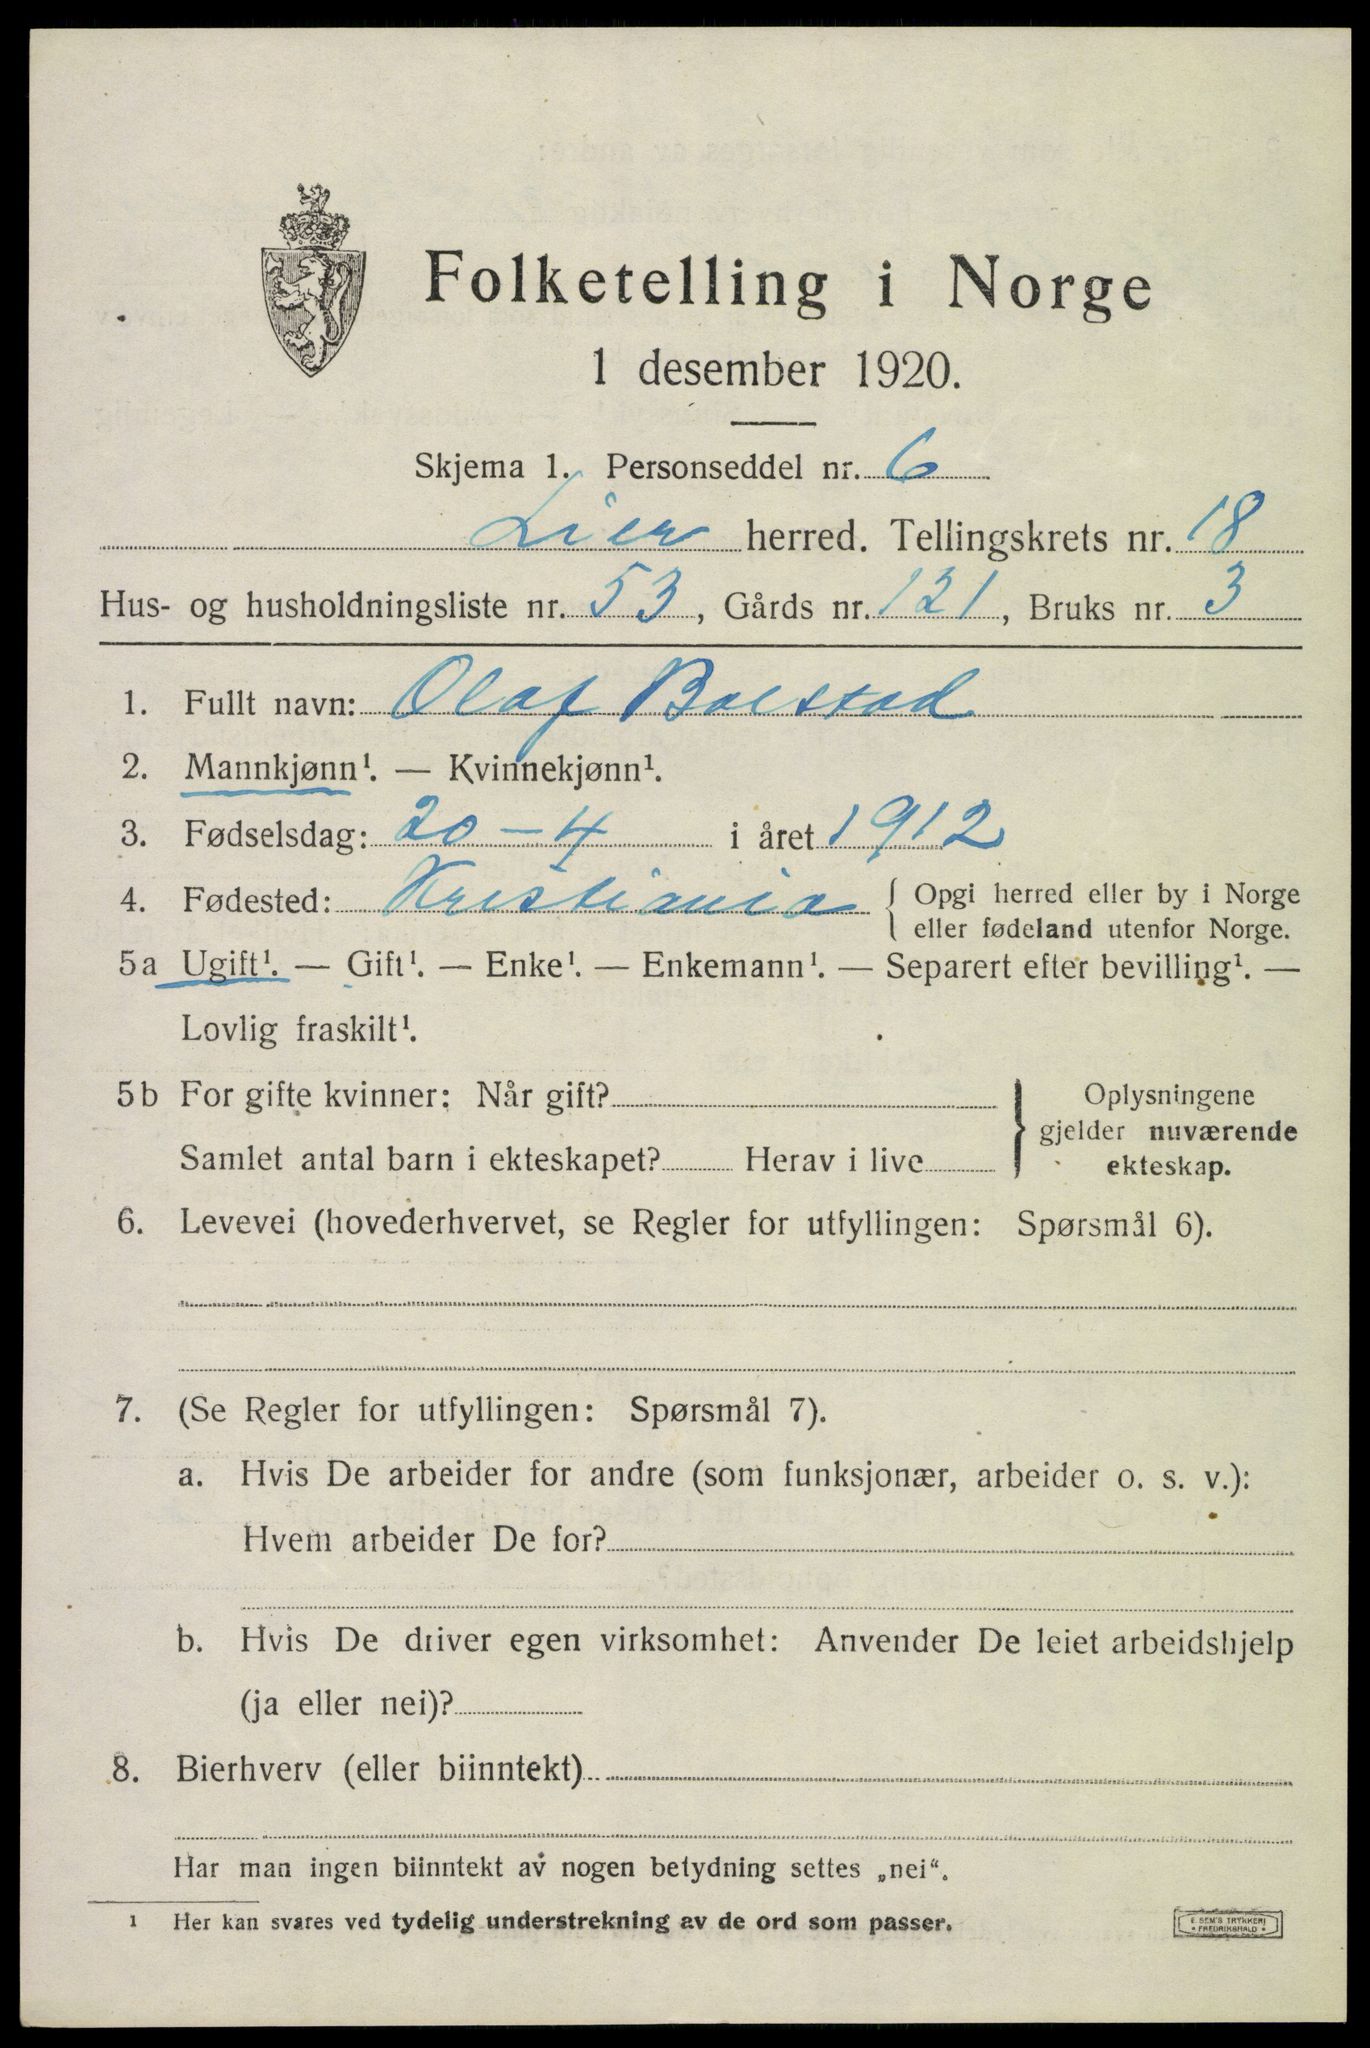 Folketelling i Norge
1 desember 1920.
Skjema 1. Personseddel nr. 6
Lier herred. Tellingskrets nr. 18
Hus- og husholdningsliste nr. 53, Gårds nr. 121, Bruks nr. 3
1. Fullt navn: Olaf Bolstad
2. Mannkjønn¹. — Kvinnekjønn¹.
3. Fødselsdag: 20-4 i året 1912
4. Fødested: Kristiania { Opgi herred eller by i Norge
eller fødeland utenfor Norge.
5a Ugift¹. — Gift¹. — Enke¹. — Enkemann¹. — Separert efter bevilling¹. —
Lovlig fraskilt¹.
5b For gifte kvinner: Når gift?
Samlet antal barn i ekteskapet? Herav i live
} Oplysningene
gjelder nuværende
ekteskap.
6. Levevei (hovederhvervet, se Regler for utfyllingen: Spørsmål 6).
7. (Se Regler for utfyllingen: Spørsmål 7).
a. Hvis De arbeider for andre (som funksjonær, arbeider o. s. v.):
Hvem arbeider De for?
b. Hvis De driver egen virksomhet: Anvender De leiet arbeidshjelp
(ja eller nei)?
8. Bierhverv (eller biinntekt)
Har man ingen biinntekt av nogen betydning settes „nei“.
1 Her kan svares ved tydelig understrekning av de ord som passer.
E. SEM'S TRYKKERI
• FREDRIKSHALD •